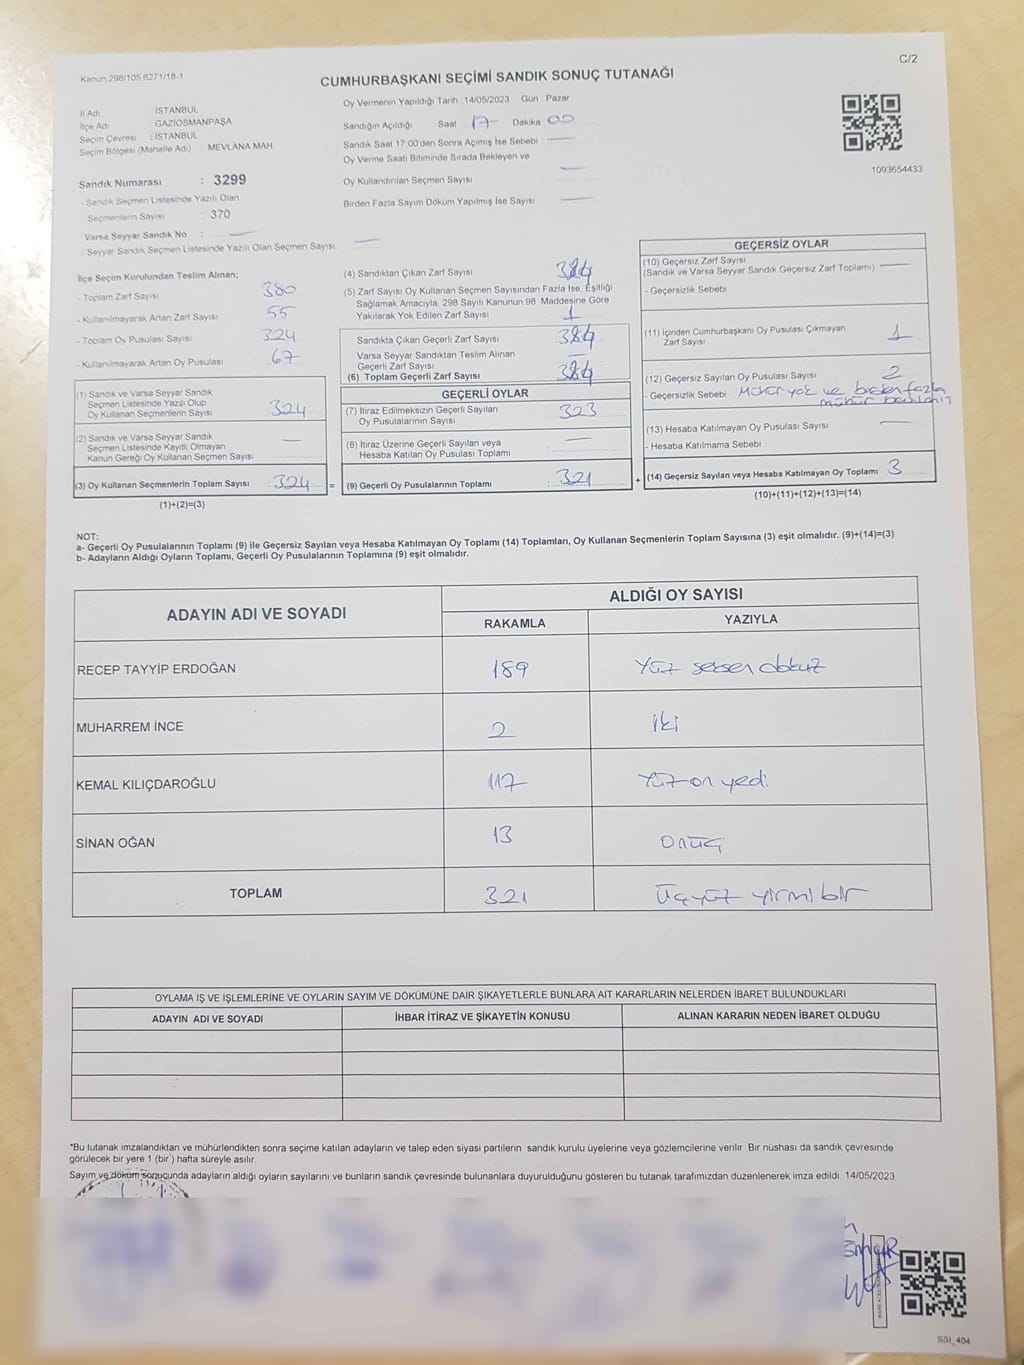 Kanun 298/105,6271/18-1
C/2
CUMHURBAŞKANI SEÇİMİ SANDIK SONUÇ TUTANAĞI
İl Adı : İSTANBUL
İlçe Adı GAZİOSMANPAŞA
Seçim Çevresi : İSTANBUL
Seçim Bölgesi (Mahalle Adı) MEVLANA MAH
Sandık Numarası : 3299
- Sandık Seçmen Listesinde Yazılı Olan
Seçmenlerin Sayısı : 370
Varsa Seyyar Sandık No :
- Seyyar Sandık Seçmen Listesinde Yazılı Olan Seçmen Sayısı
Oy Vermenin Yapıldığı Tarih 14/05/2023 Gün Pazar
Sandığın Açıldığı Saat 17 Dakika 00
Sandık Saat 17:00'den Sonra Açımış İse Sebebi
Oy Verme Saati Bitiminde Sırada Bekleyen ve
Oy Kullandırılan Seçmen Sayısı
Birden Fazla Sayım Döküm Yapılmış İse Sayısı
1093654433
İlçe Seçim Kurulundan Teslim Alınan;
- Toplam Zarf Sayısı 380
- Kullanılmayarak Artan Zarf Sayısı 55
- Toplam Oy Pusulası Sayısı 324
- Kullanılmayarak Artan Oy Pusulası 67
(1) Sandık ve Varsa Seyyar Sandık
Seçmen Listesinde Yazılı Olup
Oy Kullanan Seçmenlerin Sayısı 324
(2) Sandık ve Varsa Seyyar Sandık
Seçmen Listesinde Kayıtlı Olmayan
Kanun Gereği Oy Kullanan Seçmen Sayısı
(3) Oy Kullanan Seçmenlerin Toplam Sayısı : 324 =
(1)+(2)=(3)
(4) Sandıktan Çıkan Zarf Sayısı 324
(5) Zarf Sayısı Oy Kullanan Seçmen Sayısından Fazla İse, Eşitliği
Sağlamak Amacıyla, 298 Sayılı Kanunun 98. Maddesine Göre
Yakılarak Yok Edilen Zarf Sayısı 1
Sandıkta Çıkan Geçerli Zarf Sayısı 324
Varsa Seyyar Sandıktan Teslim Alınan
Geçerli Zarf Sayısı
(6) Toplam Geçerli Zarf Sayısı 324
GEÇERLİ OYLAR
(7) İtiraz Edilmeksizin Geçerli Sayılan
Oy Pusulalarının Sayısı 323
(8) İtiraz Üzerine Geçerli Sayılan veya
Hesaba Katılan Oy Pusulası Toplamı
(9) Geçerli Oy Pusulalarının Toplamı : 321 +
GEÇERSİZ OYLAR
(10) Geçersiz Zarf Sayısı
(Sandık ve Varsa Seyyar Sandık Geçersiz Zarf Toplamı)
- Geçersizlik Sebebi
(11) İçinden Cumhurbaşkanı Oy Pusulası Çıkmayan
Zarf Sayısı 1
(12) Geçersiz Sayılan Oy Pusulası Sayısı 2
- Geçersizlik Sebebi Mühür yok ve birden fazla
mühür
(13) Hesaba Katılmayan Oy Pusulası Sayısı
- Hesaba Katılmama Sebebi :
(14) Geçersiz Sayılan veya Hesaba Katılmayan Oy Toplamı 3
(10)+(11)+(12)+(13)=(14)
NOT:
a- Geçerli Oy Pusulalarının Toplamı (9) ile Geçersiz Sayılan veya Hesaba Katılmayan Oy Toplamı (14) Toplamları, Oy Kullanan Seçmenlerin Toplam Sayısına (3) eşit olmalıdır. (9)+(14)=(3)
b- Adayların Aldığı Oyların Toplamı, Geçerli Oy Pusulalarının Toplamına (9) eşit olmalıdır.
ADAYIN ADI VE SOYADI ALDIĞI OY SAYISI
RAKAMLA YAZIYLA
RECEP TAYYİP ERDOĞAN 189 Yüz seksen dokuz
MUHARREM İNCE 2 iki
KEMAL KILIÇDAROĞLU 117 Yüz on yedi
SİNAN OĞAN 13 onüç
TOPLAM 321 Üçyüz yirmi bir
OYLAMA İŞ VE İŞLEMLERİNE VE OYLARIN SAYIM VE DÖKÜMÜNE DAİR ŞİKAYETLERLE BUNLARA AİT KARARLARIN NELERDEN İBARET BULUNDUKLARI
ADAYIN ADI VE SOYADI İHBAR İTİRAZ VE ŞİKAYETİN KONUSU ALINAN KARARIN NEDEN İBARET OLDUĞU
*Bu tutanak imzalandıktan ve mühürlendikten sonra seçime katılan adayların ve talep eden siyasi partilerin sandık kurulu üyelerine veya gözlemcilerine verilir Bir nüshası da sandık çevresinde
görülecek bir yere 1 (bir ) hafta süreyle asılır.
Sayım ve döküm sonucunda adayların aldığı oyların sayılarını ve bunların sandık çevresinde bulunanlara duyurulduğunu gösteren bu tutanak tarafımızdan düzenlenerek imza edildi 14/05/2023
SSI_404